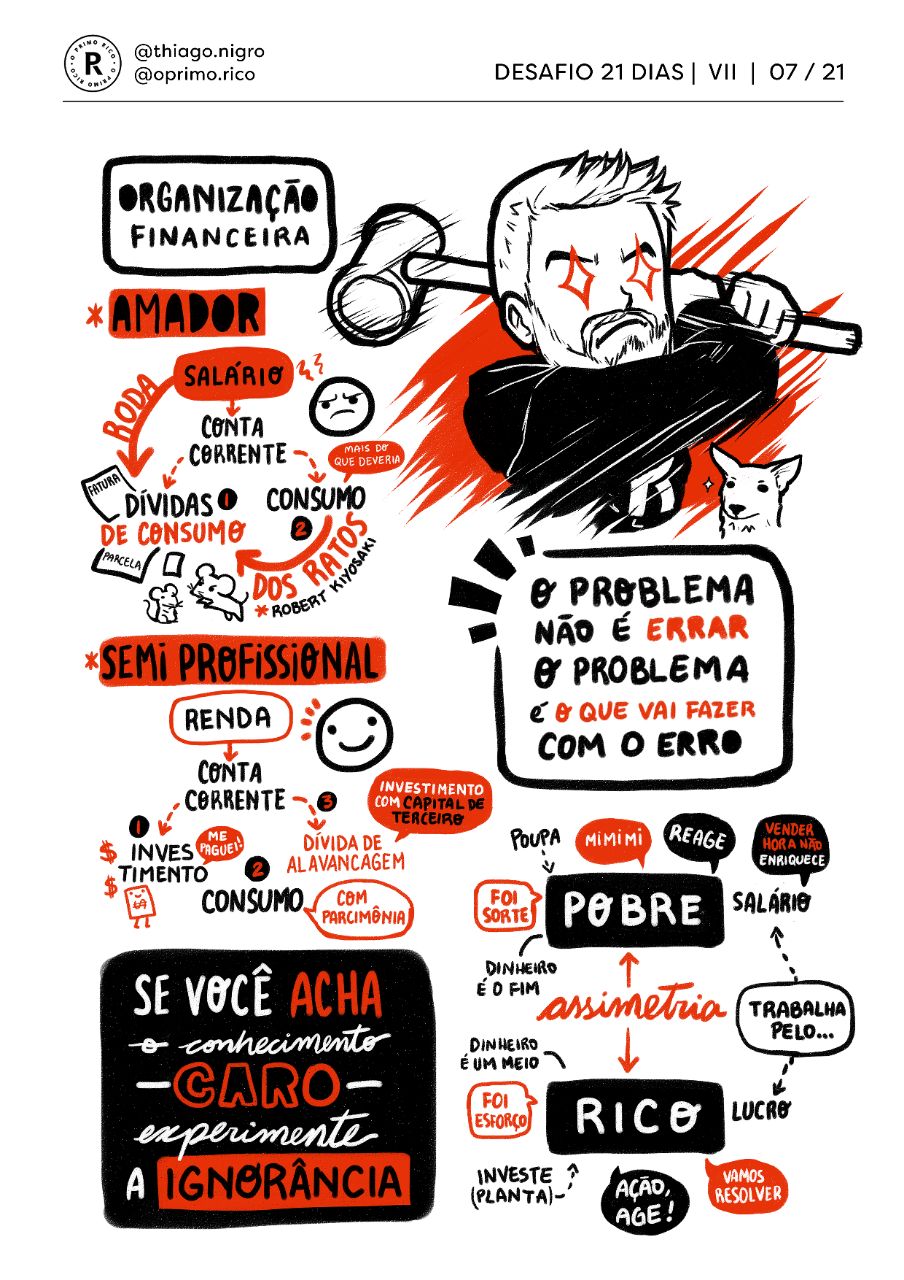 O PRIMO RICO • O PRIMO RICO •
R
@thiago.nigro
@oprimo.rico
DESAFIO 21 DIAS | VII | 07 / 21
ORGANIZAÇÃO
FINANCEIRA
*AMADOR
SALÁRIO
RODA
CONTA
CORRENTE
MAIS DO
QUE DEVERIA
FATURA
DÍVIDAS 1
DE CONSUMO
CONSUMO
2
PARCELA
DOS RATOS
*ROBERT KIYOSAKI
*SEMI PROFISSIONAL
RENDA
CONTA
CORRENTE
3
INVESTIMENTO
COM CAPITAL DE
TERCEIRO
1
$ INVES
TIMENTO
$
ME
PAGUEI!
DÍVIDA DE
ALAVANCAGEM
2
CONSUMO
COM
PARCIMÔNIA
SE VOCÊ ACHA
o conhecimento
CARO
experimente
A IGNORÂNCIA
O PROBLEMA
NÃO É ERRAR
O PROBLEMA
É O QUE VAI FAZER
COM O ERRO
POUPA
MIMIMI
REAGE
VENDER
HORA NÃO
ENRIQUECE
FOI
SORTE
POBRE
SALÁRIO
DINHEIRO
É O FIM
assimetria
TRABALHA
PELO...
DINHEIRO
É UM MEIO
FOI
ESFORÇO
RICO
LUCRO
INVESTE
(PLANTA)
AÇÃO,
AGE!
VAMOS
RESOLVER